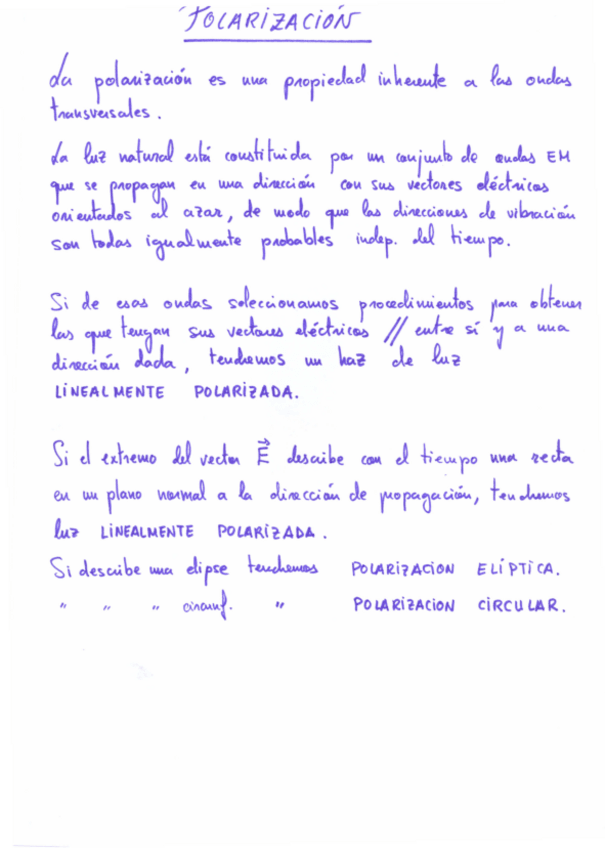 POLARIZACIÓN
La polarización es una propiedad inherente a las ondas
transversales.
La luz natural está constituida por un conjunto de ondas EM
que se propagan en una dirección con sus vectores eléctricos
orientados al azar, de modo que las direcciones de vibración
son todas igualmente probables indep. del tiempo.
Si de esas ondas seleccionamos procedimientos para obtener
las que tengan sus vectores eléctricos // entre sí y a una
dirección dada, tendremos un haz de luz
LINEALMENTE POLARIZADA.
Si el extremo del vector E⃗ describe con el tiempo una recta
en un plano normal a la dirección de propagación, tendremos
luz LINEALMENTE POLARIZADA.
Si describe una elipse tendremos POLARIZACION ELÍPTICA.
" " " circunf. " POLARIZACION CIRCULAR.